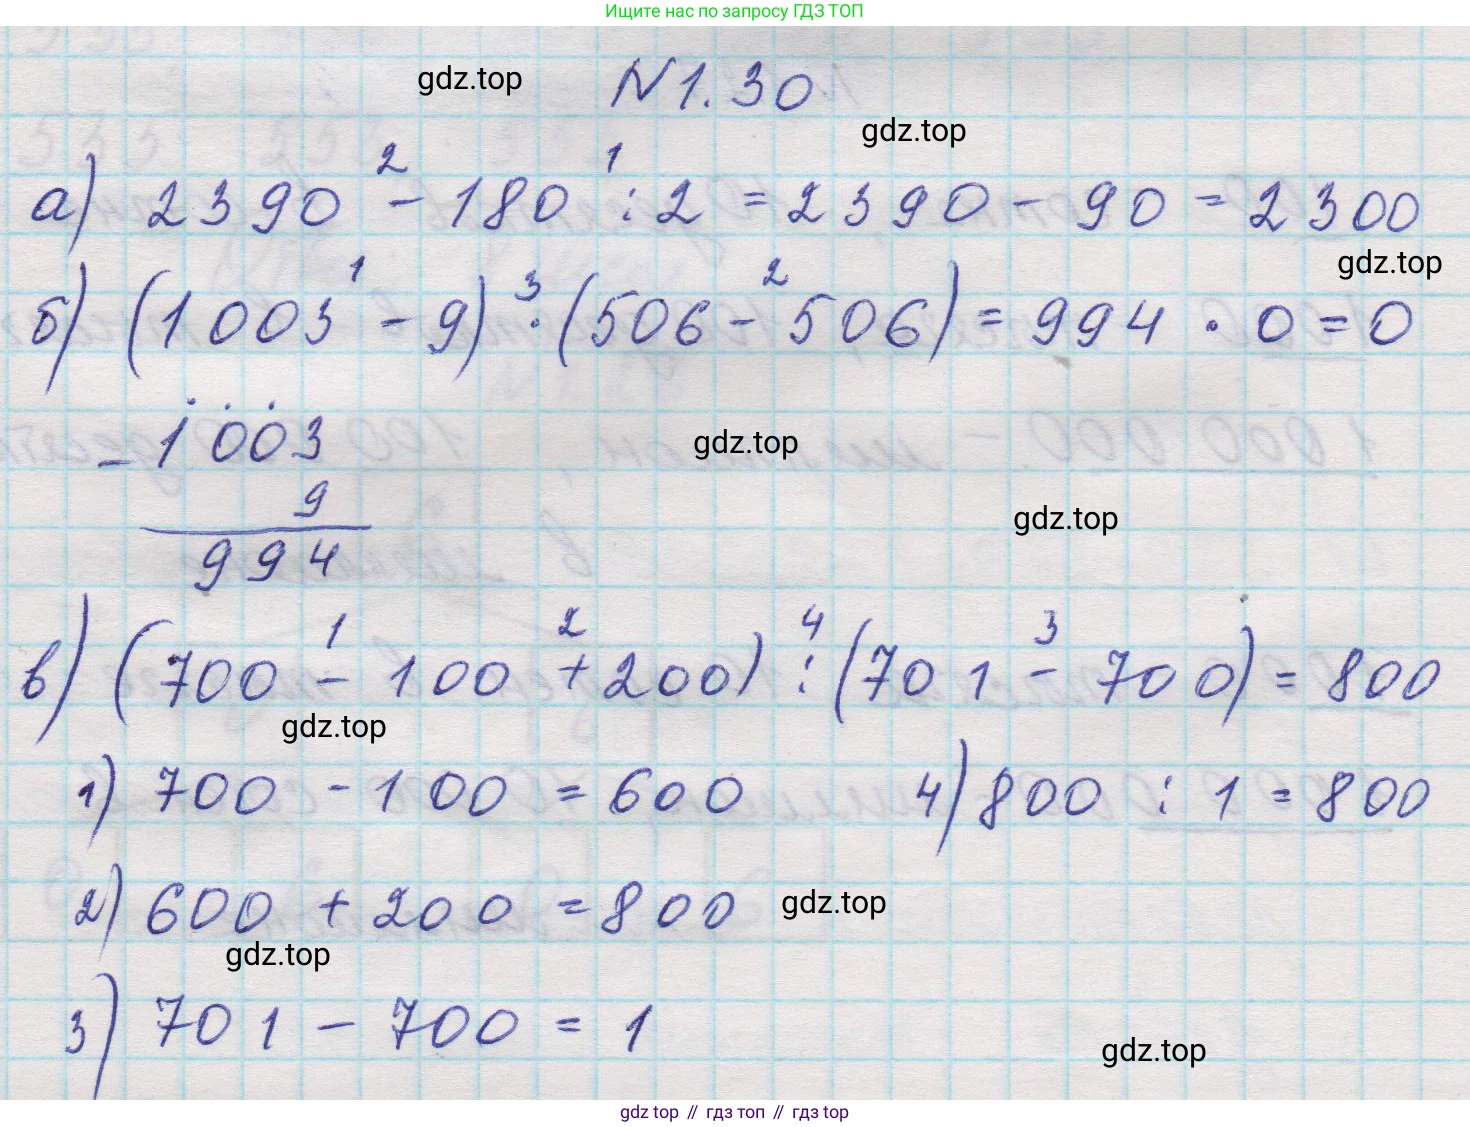 Ищите нас по запросу ГДЗ ТОП
gdz.top
N 1.30
gdz.top
2 1
а) 2390 - 180 : 2 = 2390 - 90 = 2300
gdz.top
1 3 2
б) (1003 - 9) · (506 - 506) = 994 · 0 = 0
- 1003
gdz.top
9
gdz.top
994
1 2 4 3
в) (700 - 100 + 200) : (701 - 700) = 800
gdz.top
1) 700 - 100 = 600 4) 800 : 1 = 800
2) 600 + 200 = 800
gdz.top
gdz.top
3) 701 - 700 = 1
gdz.top
gdz top // гдз топ // гдз top